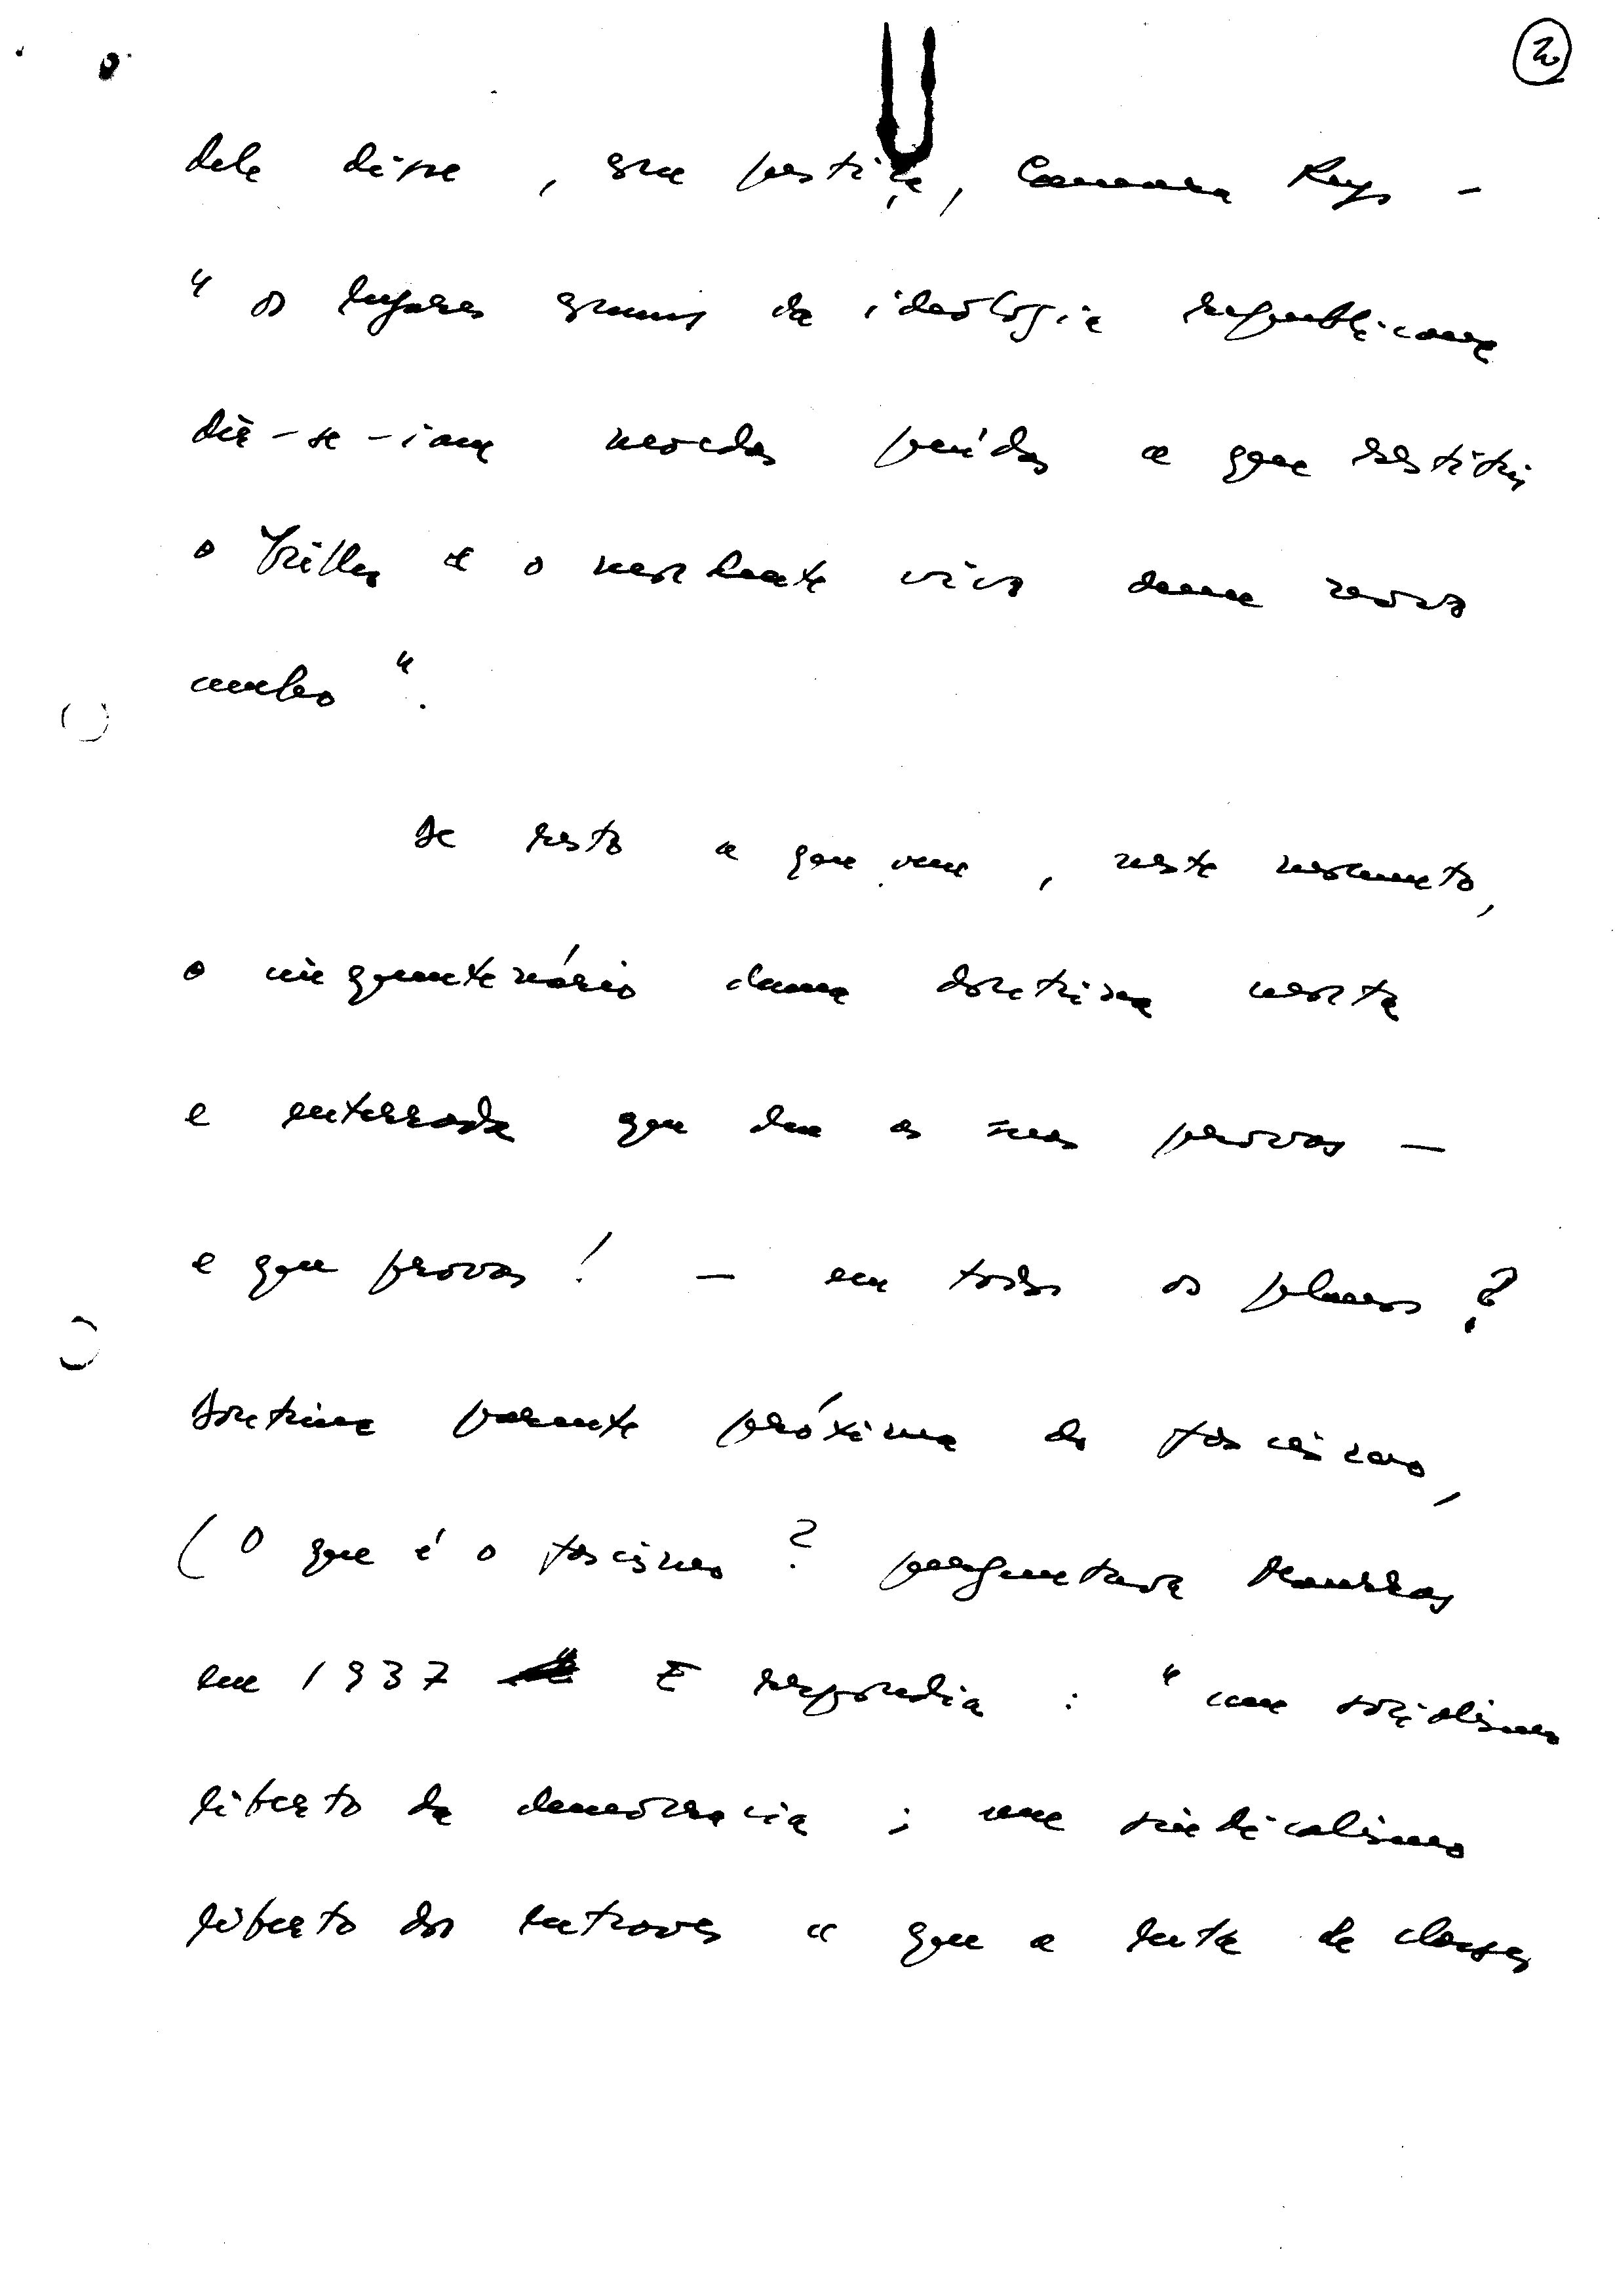 2
dele disse, com justiça, Camara Reys -
" os lugares comuns da ideologia republicana
dir-se-iam moedas puídas a que restitui
o brilho e o recorte vivo dum novo
cunho ".
De resto a que vem, neste momento,
o cinquentenário duma doutrina morta
e enterrada que deu as suas provas —
e que provas! — em todos os planos?
Doutrina parente próxima do fascismo,
(O que é o fascismo? perguntava Maurras
em 1937 E respondia: " um socialismo
liberto da democracia; um sindicalismo
liberto dos entraves " que a luta de classes